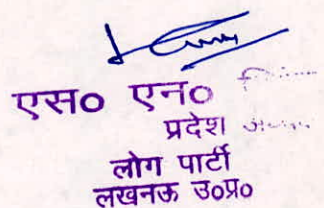 एस० एन०
प्रदेश
लोग पार्टी
लखनऊ उ०प्र०